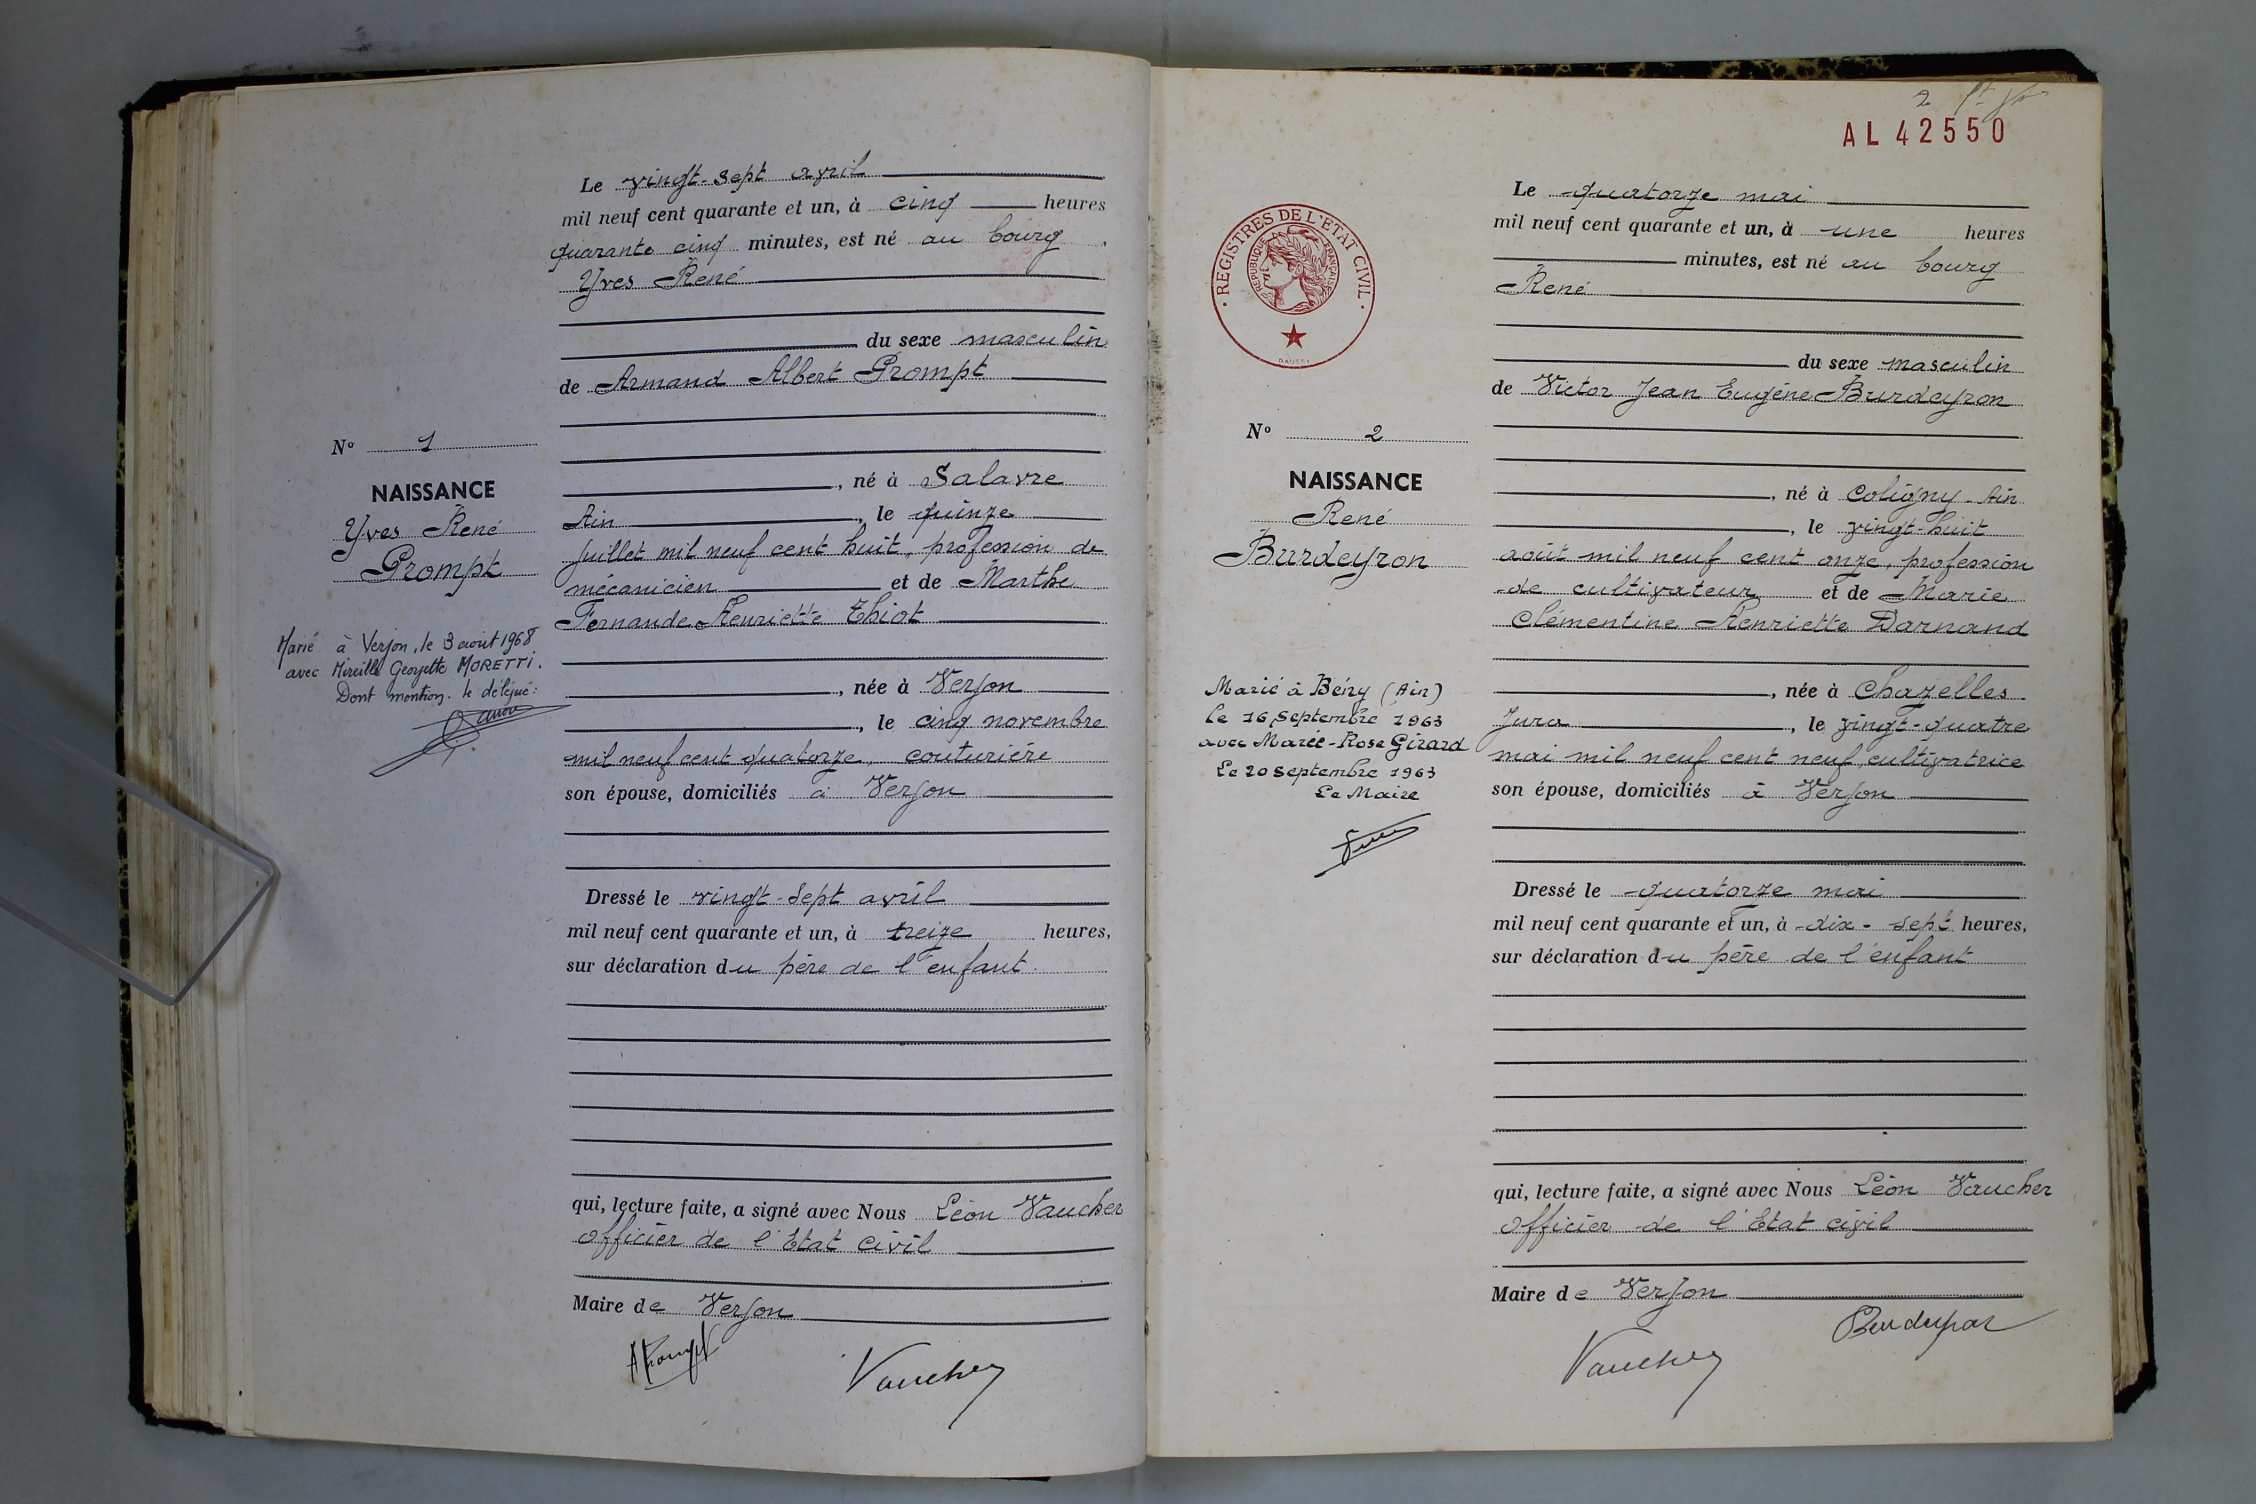 Le vingt-sept avril
mil neuf cent quarante et un, à cinq heures
quarante cinq minutes, est né au bourg
Yves René
du sexe masculin
de Armand Albert Prompt
, né à Salavre
Ain , le quinze
juillet mil neuf cent huit, profession de
mécanicien et de Marthe
Fernande Henriette Thiot
, née à Verjon
, le cinq novembre
mil neuf cent quatorze, couturière
son épouse, domiciliés à Verjon
Dressé le vingt-sept avril
mil neuf cent quarante et un, à treize heures,
sur déclaration du père de l'enfant
qui, lecture faite, a signé avec Nous Léon Vaucher
officier de l'Etat civil
Maire de Verjon
APrompt
Vaucher
N° 1
NAISSANCE
Yves René
Prompt
Marié à Verjon, le 3 août 1968
avec Mireille Georgette MORETTI.
Dont mention. le délégué:
2
AL 42550
REGISTRES DE L'ETAT CIVIL
REPUBLIQUE FRANÇAISE
Le quatorze mai
mil neuf cent quarante et un, à une heures
minutes, est né au bourg
René
du sexe masculin
de Victor Jean Eugène Burdeyron
, né à Coligny Ain
, le vingt-huit
août mil neuf cent onze, profession
de cultivateur et de Marie
Clémentine Henriette Darnand
, née à Chazelles
Jura , le vingt-quatre
mai mil neuf cent neuf, cultivatrice
son épouse, domiciliés à Verjon
Dressé le quatorze mai
mil neuf cent quarante et un, à dix-sept heures,
sur déclaration du père de l'enfant
qui, lecture faite, a signé avec Nous Léon Vaucher
officier de l'Etat civil
Maire de Verjon
Vaucher
N° 2
NAISSANCE
René
Burdeyron
Marié à Bény (Ain)
le 16 Septembre 1963
avec Marie-Rose Girard
Le 20 Septembre 1963
Le Maire